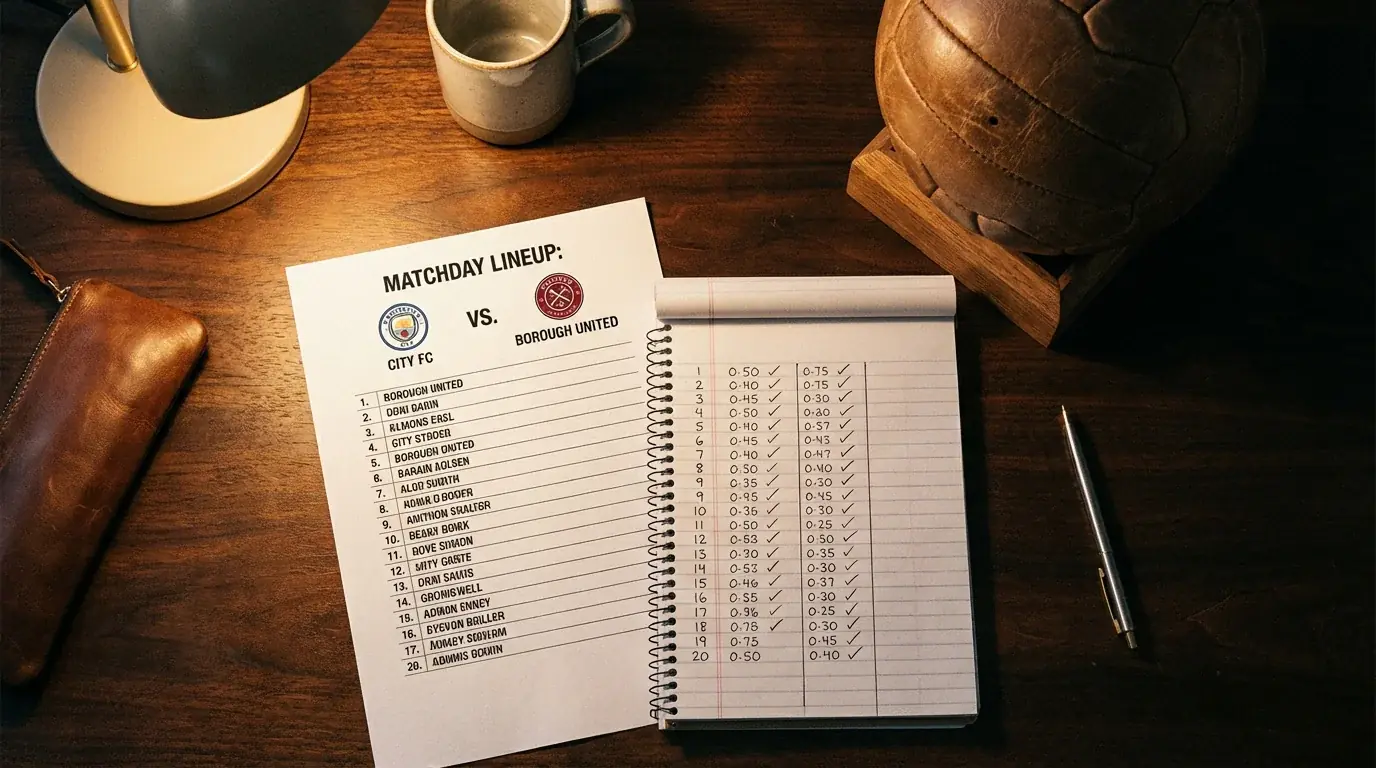 MATCHDAY LINEUP:
VS.
CITY FC
BOROUGH UNITED
1. BOROUGH UNITED
2. DBNI DARIN
3. RLMONS ERSL
4. GITY STBOER
5. BOROUGH UNITED
6. BARAIN AOLSEN
7. ALOD SWATH
8. O BODER
9. ANTTHON SRALTER
10. BEARY BORK
11. DOVE SIMON
12. SHTY GARTE
13. DRNI SAUIS
14. GROMISWELL
15. ADMON ENNEY
16. BYEVON BRILLER
17. NOMEY SORERM
20. ADMINS BORIN
1 0.50 ✓ 0.75 ✓
2 0.40 ✓ 0.75 ✓
3 0.45 ✓ 0.30 ✓
4 0.50 ✓ 0.20 ✓
5 0.40 ✓ 0.57 ✓
6 0.45 ✓ 0.43 ✓
7 0.40 ✓ 0.47 ✓
8 0.50 ✓ 0.40 ✓
9 0.35 ✓ 0.30 ✓
9 0.95 ✓ 0.45 ✓
10 0.36 ✓ 0.30 ✓
11 0.50 ✓ 0.25 ✓
12 0.53 ✓ 0.50 ✓
13 0.30 ✓ 0.35 ✓
14 0.53 ✓ 0.30 ✓
15 0.46 ✓ 0.37 ✓
16 0.55 ✓ 0.30 ✓
17 0.96 ✓ 0.25 ✓
18 0.78 ✓ 0.30 ✓
19 0.75 0.45 ✓
20 0.50 0.40 ✓